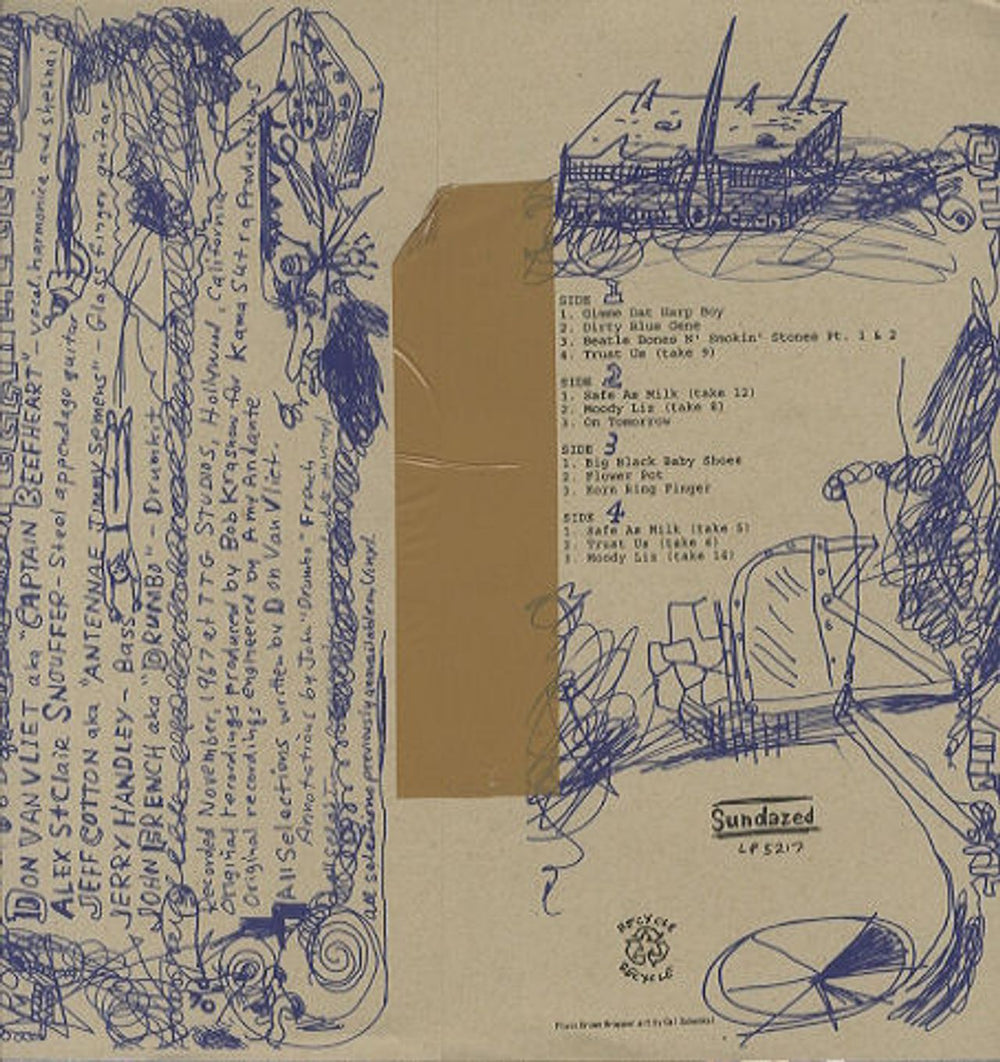 DON VAN VLIET aka "CAPTAIN BEEFHEART" - vocal, harmonica and shehnai
ALEX St Clair SNOUFFER - Steel appendage guitar
JEFF COTTON aka "ANTENNAE Jimmy Semmens" - Glass finger guitar
JERRY HANDLEY - Bass
JOHN FRENCH aka "DRUMBO" - Drumkit
Recorded November, 1967 at TTG STUDIOS, Hollywood, California
Original recordings produced by Bob Krasnow for Kama Sutra Productions
Original recordings engineered by Amy Andante
All Selections written by Don Van Vliet.
Annotations by John "Drumbo" French
All selections previously unavailable on vinyl
SIDE 1
1. Gimme Dat Harp Boy
2. Dirty Blue Gene
3. Beatle Bones N' Smokin' Stones Pt. 1 & 2
4. Trust Us (take 9)
SIDE 2
1. Safe As Milk (take 12)
2. Moody Liz (take 8)
3. On Tomorrow
SIDE 3
1. Big Black Baby Shoes
2. Flower Pot
3. Korn Ring Finger
SIDE 4
1. Safe As Milk (take 5)
2. Trust Us (take 6)
3. Moody Liz (take 14)
Sundazed
LP 5217
RECYCLE
RECYCLE
Plain Brown Wrapper art by Cal Schenkel